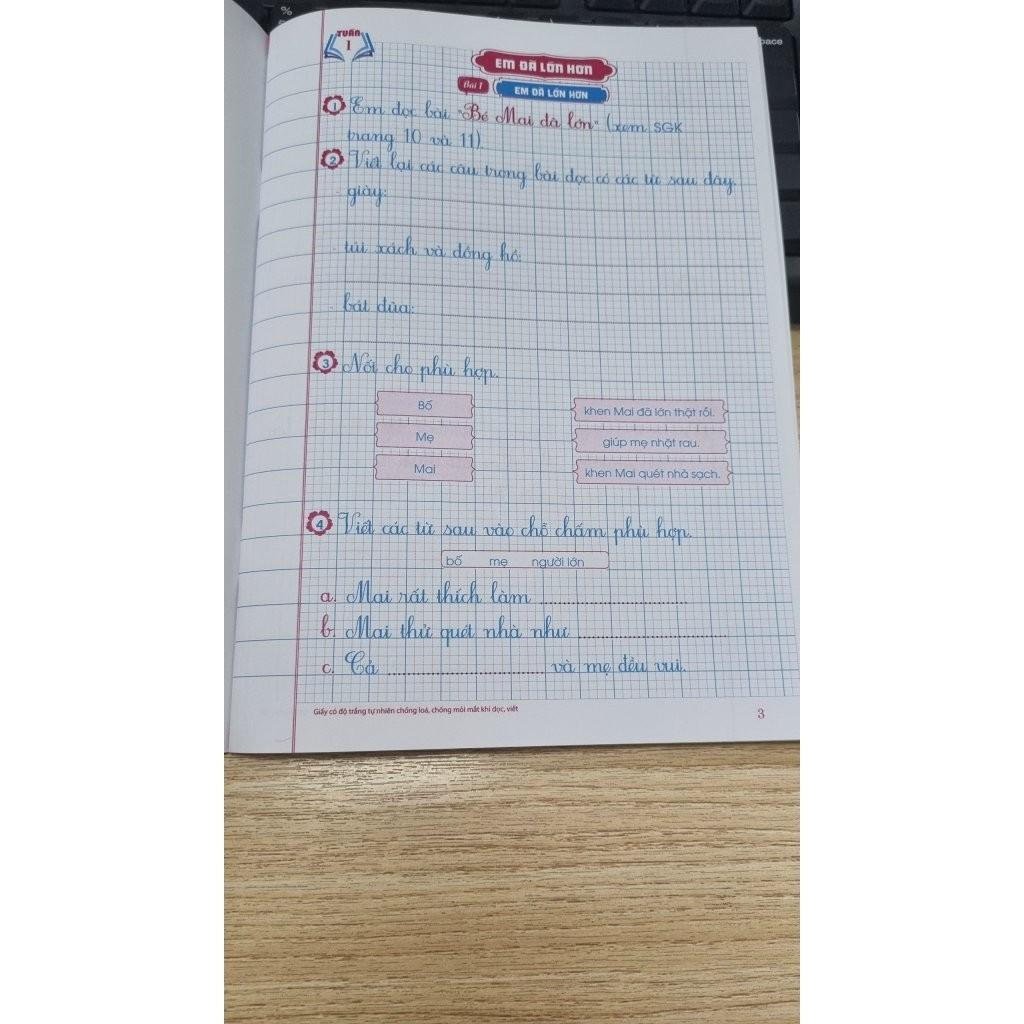 %
pace
TUẦN
1
EM ĐÃ LỚN HƠN
Bài 1 EM ĐÃ LỚN HƠN
1 Em đọc bài "Bé Mai đã lớn" (xem SGK
trang 10 và 11).
2 Viết lại các câu trong bài đọc có các từ sau đây.
- giày:
- túi xách và đồng hồ:
- bát đũa:
3 Nối cho phù hợp.
Bố khen Mai đã lớn thật rồi.
Mẹ giúp mẹ nhặt rau.
Mai khen Mai quét nhà sạch.
4 Viết các từ sau vào chỗ chấm phù hợp.
bố mẹ người lớn
a. Mai rất thích làm ....................
b. Mai thử quét nhà như ....................
c. Cả .................... và mẹ đều vui.
Giấy có độ trắng tự nhiên chống loá, chống mỏi mắt khi đọc, viết
3